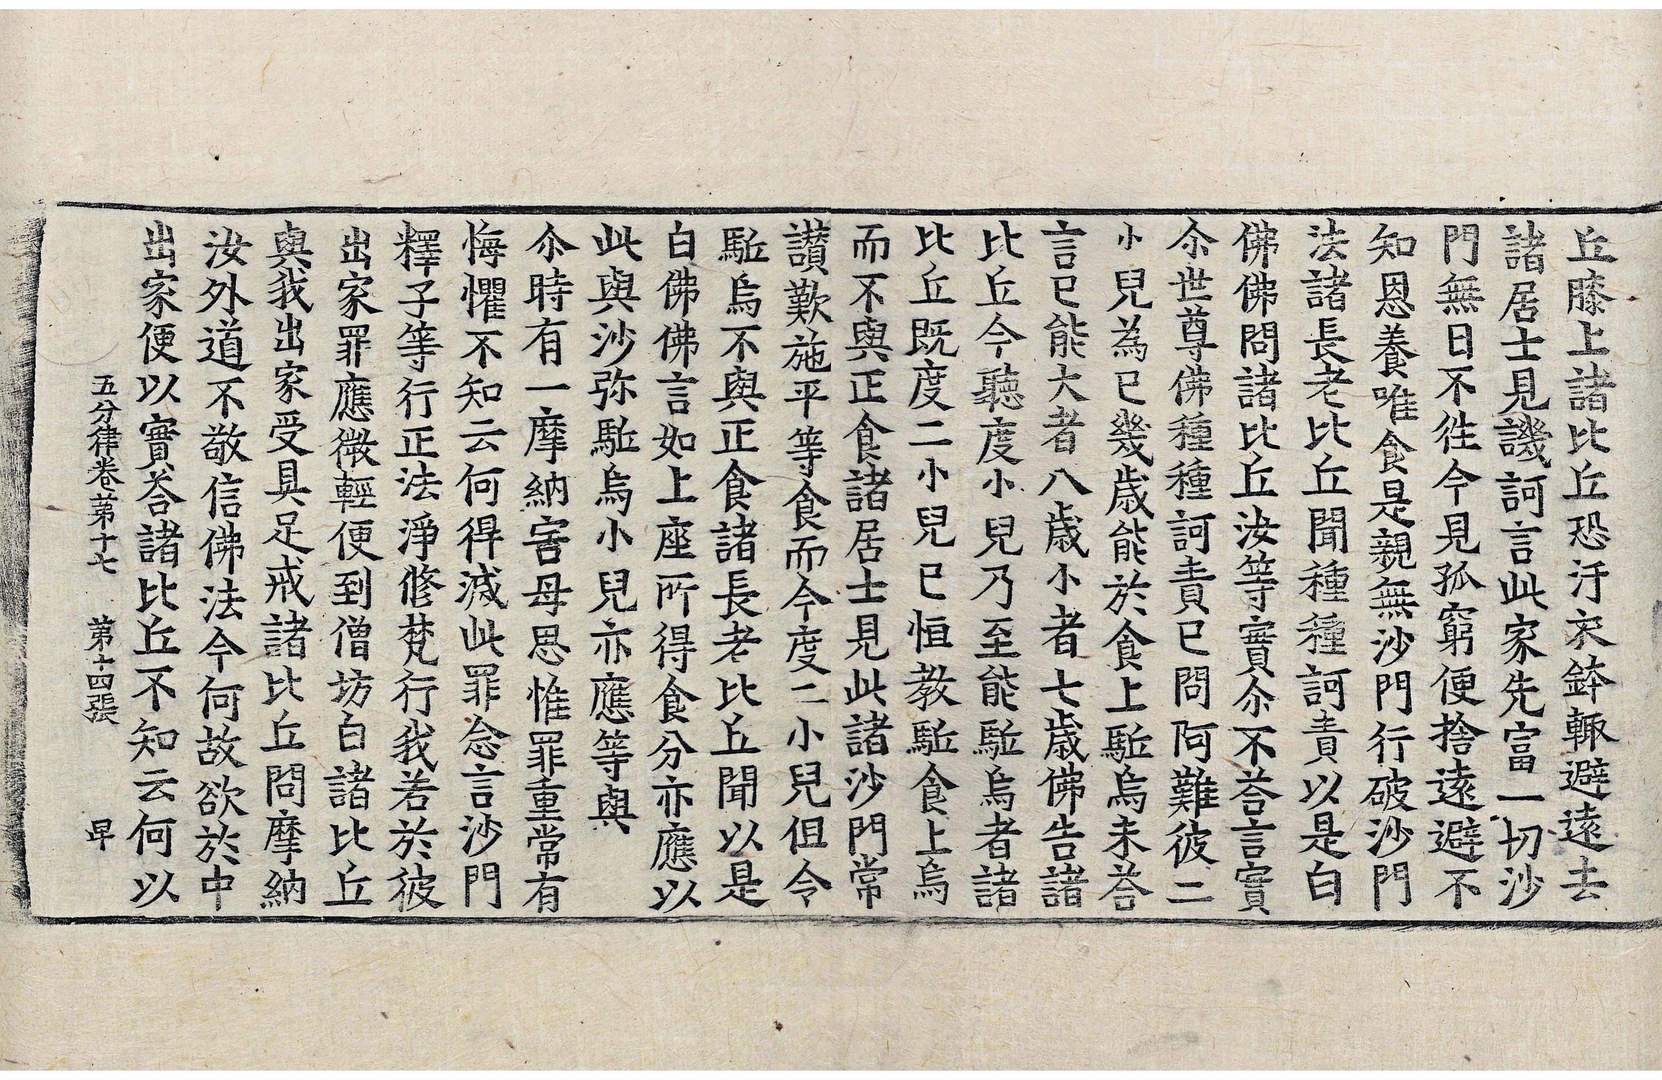 丘膝上諸比丘恐汙衣鉢輙避遠去
諸居士見譏訶言此家先富一切沙
門無日不徃今見孤窮便捨遠避不
知恩養唯食是親無沙門行破沙門
法諸長老比丘聞種種訶責以是白
佛佛問諸比丘汝等實尒不荅言實
尒世尊佛種種訶責已問阿難彼二
小兒為已幾歳能於食上駈烏未荅
言已能大者八歳小者七歳佛告諸
比丘今聽度小兒乃至能駈烏者諸
比丘既度二小兒已恒教駈食上烏
而不與正食諸居士見此諸沙門常
讃歎施平等食而今度二小兒但令
駈烏不與正食諸長老比丘聞以是
白佛佛言如上座所得食分亦應以
此與沙弥駈烏小兒亦應等與
尒時有一摩納害母思惟罪重常有
悔懼不知云何得滅此罪念言沙門
釋子等行正法淨修梵行我若於彼
出家罪應微輕便到僧坊白諸比丘
與我出家受具足戒諸比丘問摩納
汝外道不敬信佛法今何故欲於中
出家便以實荅諸比丘不知云何以
五分律卷第十七　第十四張　早